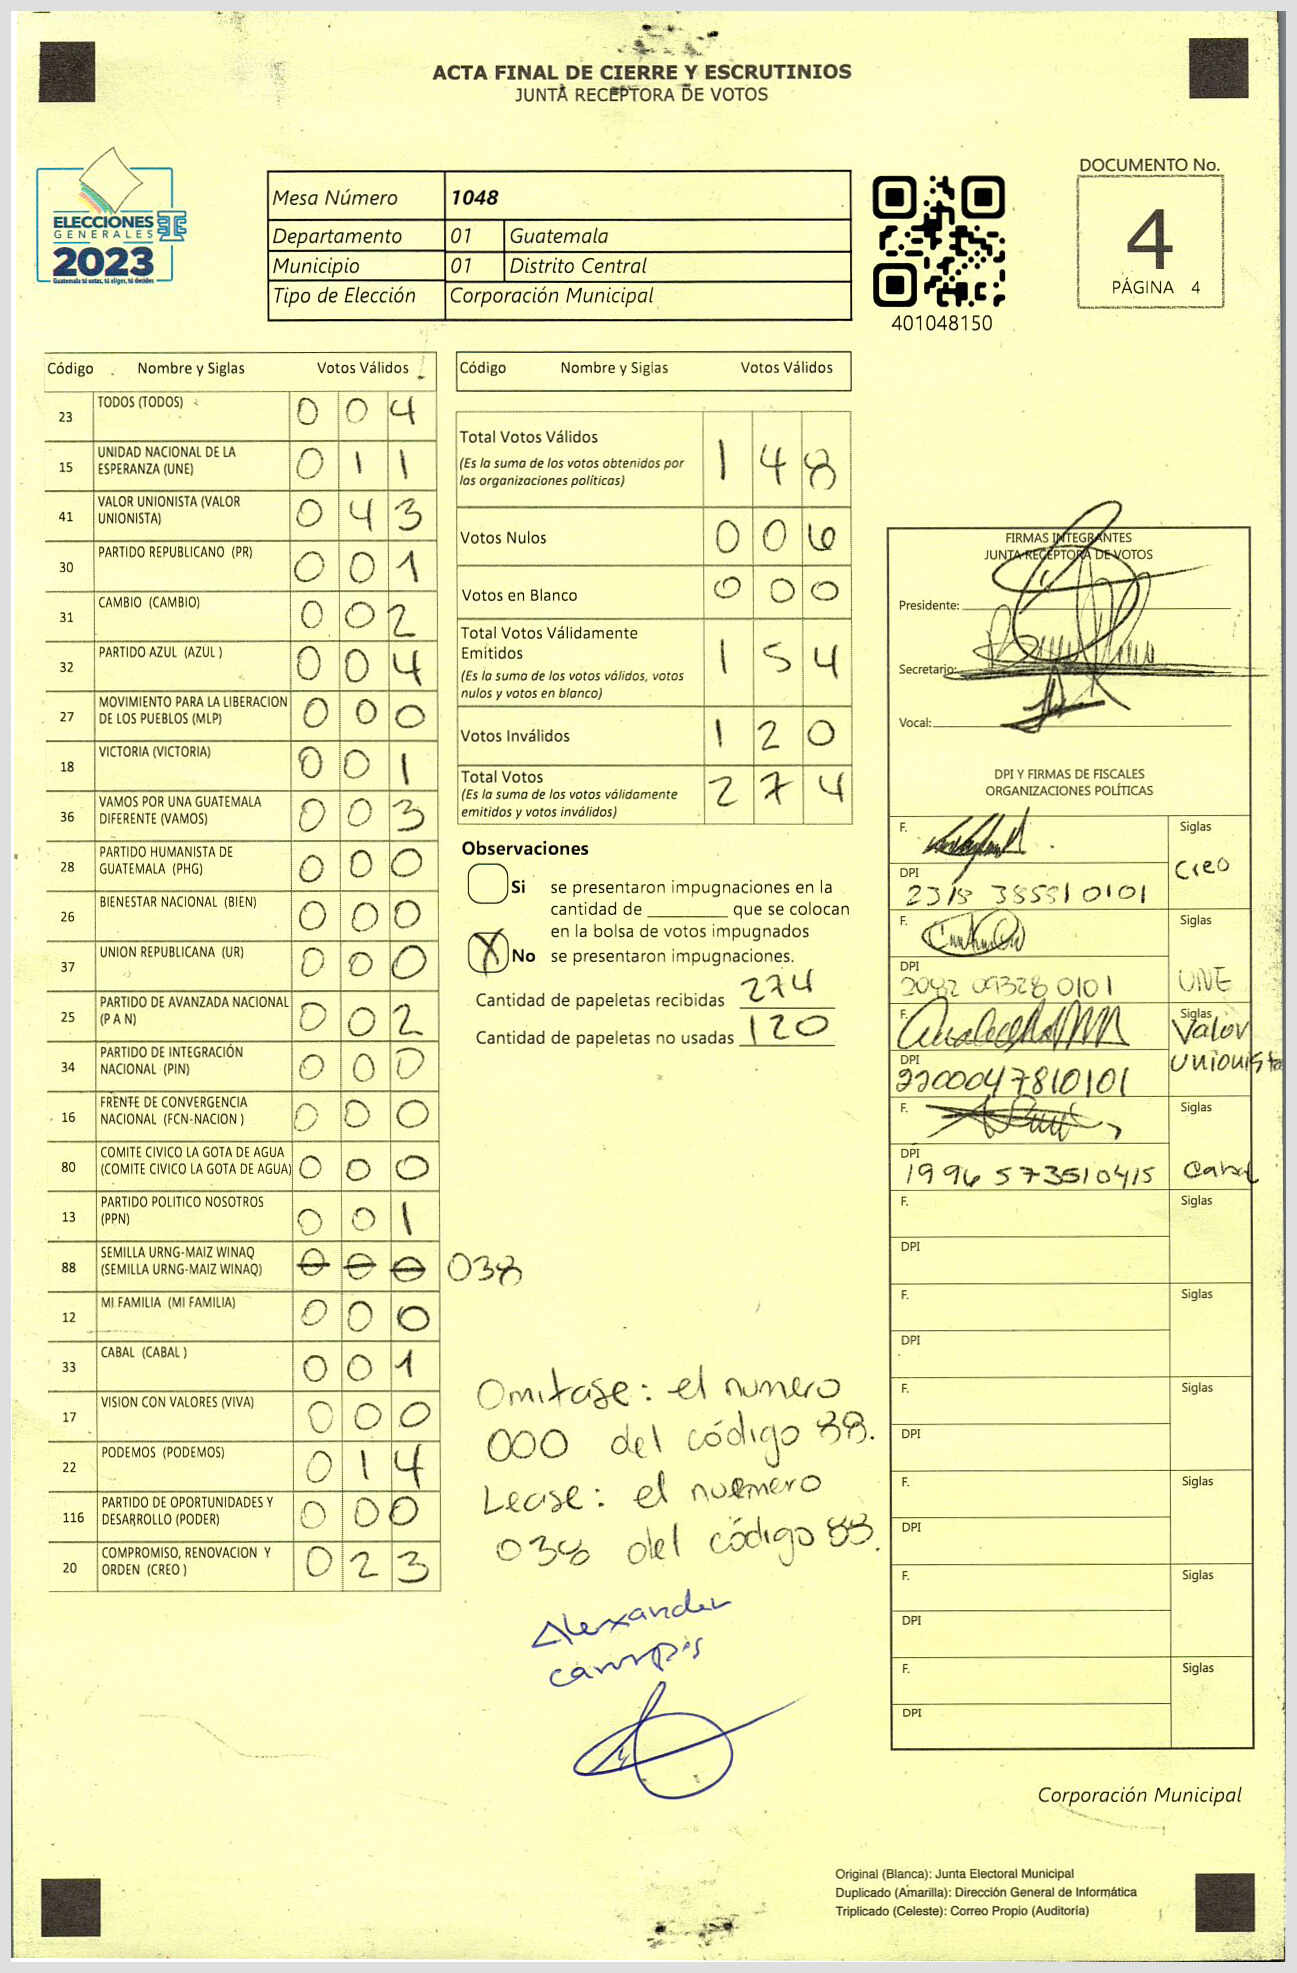 ACTA FINAL DE CIERRE Y ESCRUTINIOS
JUNTA RECEPTORA DE VOTOS
ELECCIONES
GENERALES
2023
Guatemala tú votas, tú eliges, tú decides
Mesa Número 1048
Departamento 01 Guatemala
Municipio 01 Distrito Central
Tipo de Elección Corporación Municipal
401048150
DOCUMENTO No.
4
PÁGINA 4
Código Nombre y Siglas Votos Válidos
23 TODOS (TODOS) 0 0 4
15 UNIDAD NACIONAL DE LA
ESPERANZA (UNE) 0 1 1
41 VALOR UNIONISTA (VALOR
UNIONISTA) 0 4 3
30 PARTIDO REPUBLICANO (PR) 0 0 1
31 CAMBIO (CAMBIO) 0 0 2
32 PARTIDO AZUL (AZUL ) 0 0 4
27 MOVIMIENTO PARA LA LIBERACION
DE LOS PUEBLOS (MLP) 0 0 0
18 VICTORIA (VICTORIA) 0 0 1
36 VAMOS POR UNA GUATEMALA
DIFERENTE (VAMOS) 0 0 3
28 PARTIDO HUMANISTA DE
GUATEMALA (PHG) 0 0 0
26 BIENESTAR NACIONAL (BIEN) 0 0 0
37 UNION REPUBLICANA (UR) 0 0 0
25 PARTIDO DE AVANZADA NACIONAL
(P A N) 0 0 2
34 PARTIDO DE INTEGRACIÓN
NACIONAL (PIN) 0 0 0
16 FRENTE DE CONVERGENCIA
NACIONAL (FCN-NACION ) 0 0 0
80 COMITE CIVICO LA GOTA DE AGUA
(COMITE CIVICO LA GOTA DE AGUA) 0 0 0
13 PARTIDO POLITICO NOSOTROS
(PPN) 0 0 1
88 SEMILLA URNG-MAIZ WINAQ
(SEMILLA URNG-MAIZ WINAQ) 0 0 0 038
12 MI FAMILIA (MI FAMILIA) 0 0 0
33 CABAL (CABAL ) 0 0 1
17 VISION CON VALORES (VIVA) 0 0 0
22 PODEMOS (PODEMOS) 0 1 4
116 PARTIDO DE OPORTUNIDADES Y
DESARROLLO (PODER) 0 0 0
20 COMPROMISO, RENOVACION Y
ORDEN (CREO ) 0 2 3
Código Nombre y Siglas Votos Válidos
Total Votos Válidos 1 4 8
(Es la suma de los votos obtenidos por
las organizaciones políticas)
Votos Nulos 0 0 6
Votos en Blanco 0 0 0
Total Votos Válidamente
Emitidos 1 5 4
(Es la suma de los votos válidos, votos
nulos y votos en blanco)
Votos Inválidos 1 2 0
Total Votos 2 7 4
(Es la suma de los votos válidamente
emitidos y votos inválidos)
Observaciones
Si se presentaron impugnaciones en la
cantidad de ________ que se colocan
en la bolsa de votos impugnados
X No se presentaron impugnaciones.
Cantidad de papeletas recibidas 274
Cantidad de papeletas no usadas 120
Omitase: el numero
000 del código 88.
Lease: el nuemero
038 del código 88.
Alexander
campos
FIRMAS INTEGRANTES
JUNTA RECEPTORA DE VOTOS
Presidente:
Secretario:
Vocal:
DPI Y FIRMAS DE FISCALES
ORGANIZACIONES POLÍTICAS
F. Siglas
Creo
DPI
2318 38581 0101
F. Siglas
DPI UNE
2082 09328 0101
F. Siglas
Valor
Unionista
DPI
2200047810101
F. Siglas
DPI
1996 57351 0415 Cabal
F. Siglas
DPI
F. Siglas
DPI
F. Siglas
DPI
F. Siglas
DPI
F. Siglas
DPI
F. Siglas
DPI
Corporación Municipal
Original (Blanca): Junta Electoral Municipal
Duplicado (Amarilla): Dirección General de Informática
Triplicado (Celeste): Correo Propio (Auditoría)